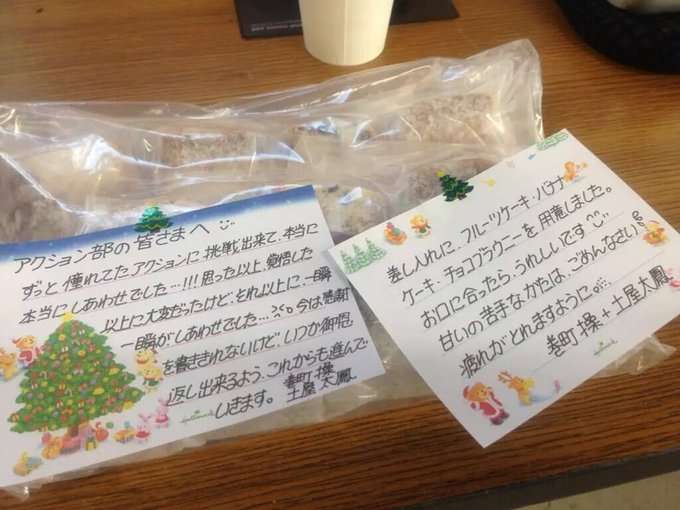 アクション部の皆さまへ
ずっと、憧れてたアクションに挑戦出来て、本当に
本当にしあわせでした…!!!思った以上、覚悟した
以上に大変だったけど、それ以上に、一瞬
一瞬がしあわせでした…。今は感謝
を書ききれないけど、いつか御恩
返し出来るよう、これからも進んで
いきます。
巻町 操
土屋 太鳳
Hallmark
差し入れに、フルーツケーキ・バナナ
ケーキ・チョコブラウニーを用意しました。
お口に合ったら、うれしいです
甘いの苦手なかたは、ごめんなさい
疲れがとれますように。
巻町 操+土屋太鳳
Hallmark